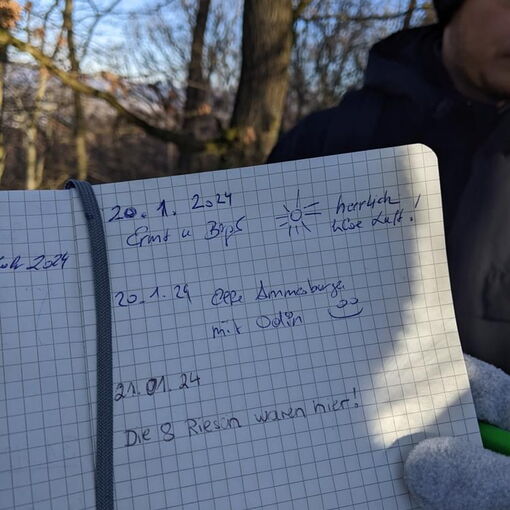 20.1.2024
Ernst u
herrlich
Luft!
2024
20.1.24
mit Odin
21.01.24
Die 8 Riesen waren hier!